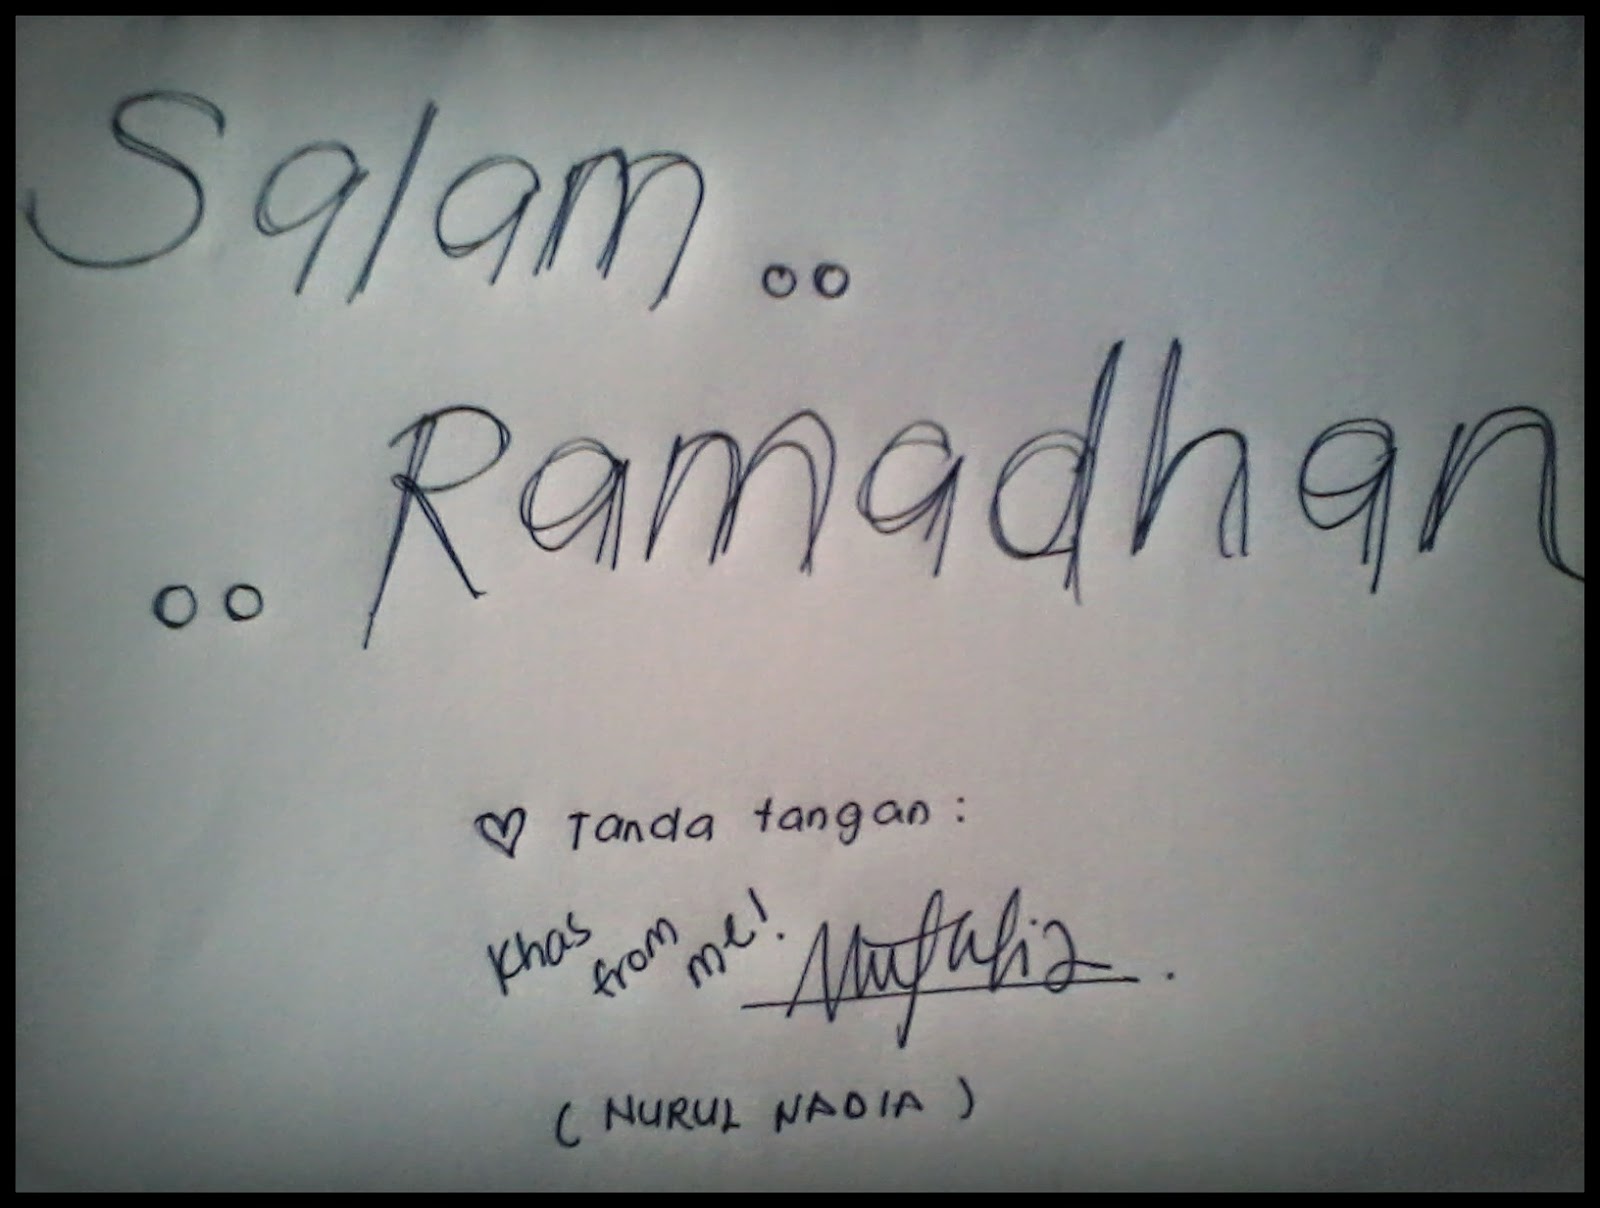 Salam ..
.. Ramadhan
♡ Tanda tangan :
Khas from me!
( NURUL NADIA )